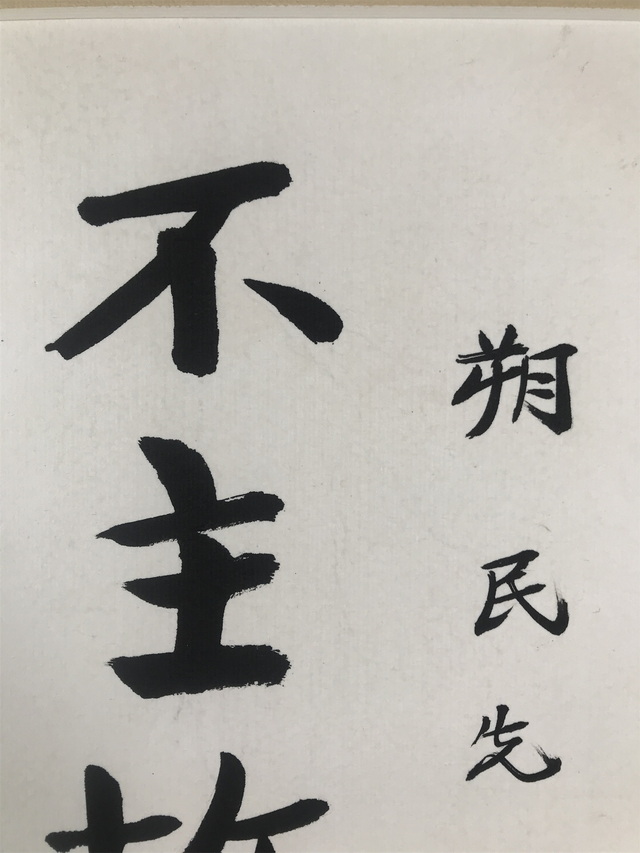 朔民先
不主故